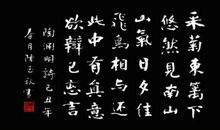 采菊東篱下
悠然見南山
山氣日夕佳
飛鳥相与還
此中有真意
欲辯已忘言
陶渊明詩己丑年
春月陸書